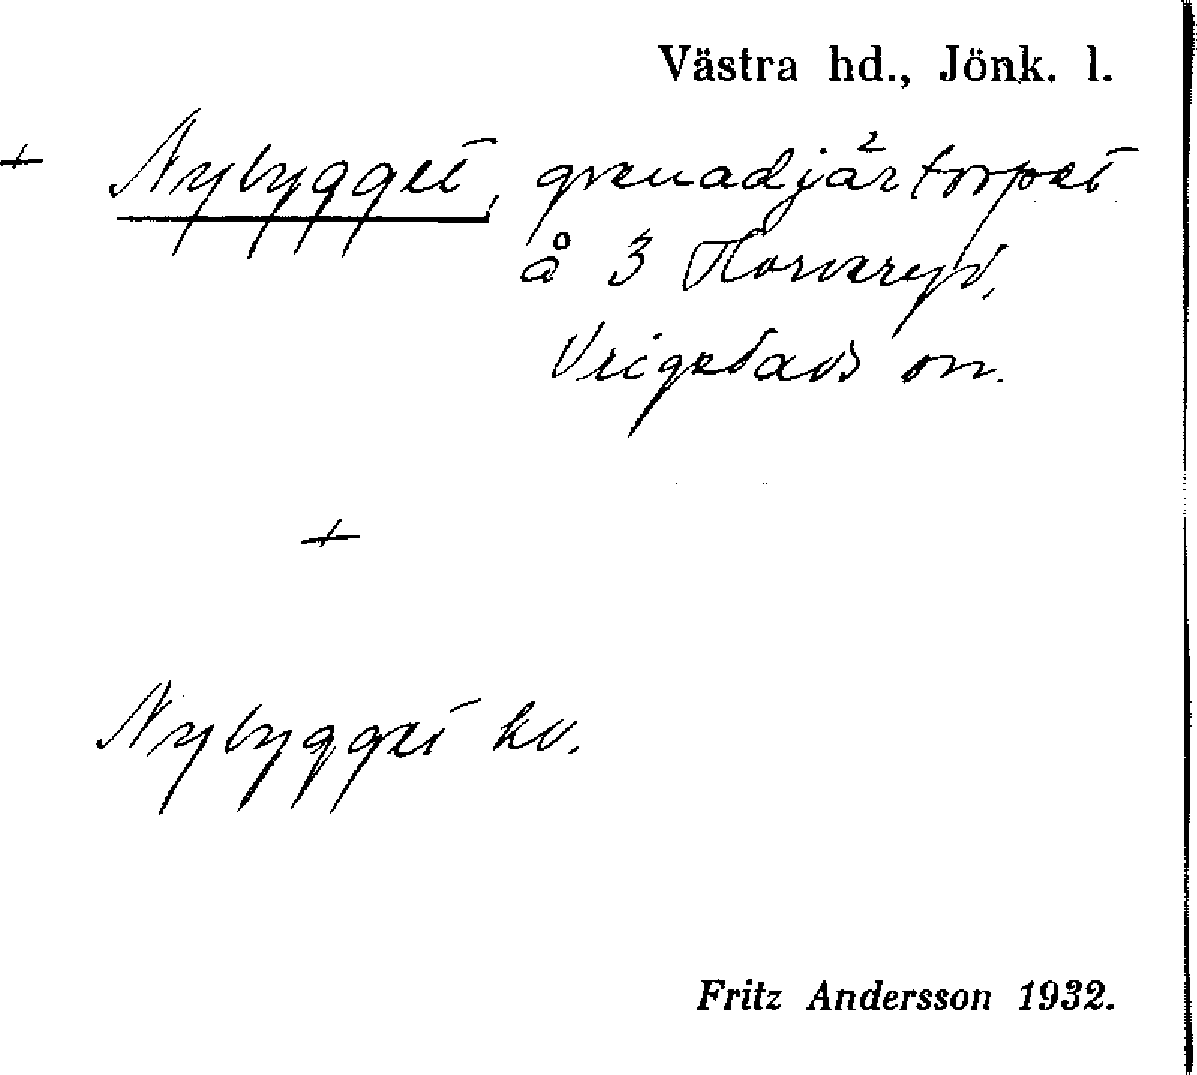 Västra hd., Jönk. l.
+ Nybygget, grenadjärtorpet
å 3 Horveryd,
Vrigstads sn.
+
Nybygget hv.
Fritz Andersson 1932.